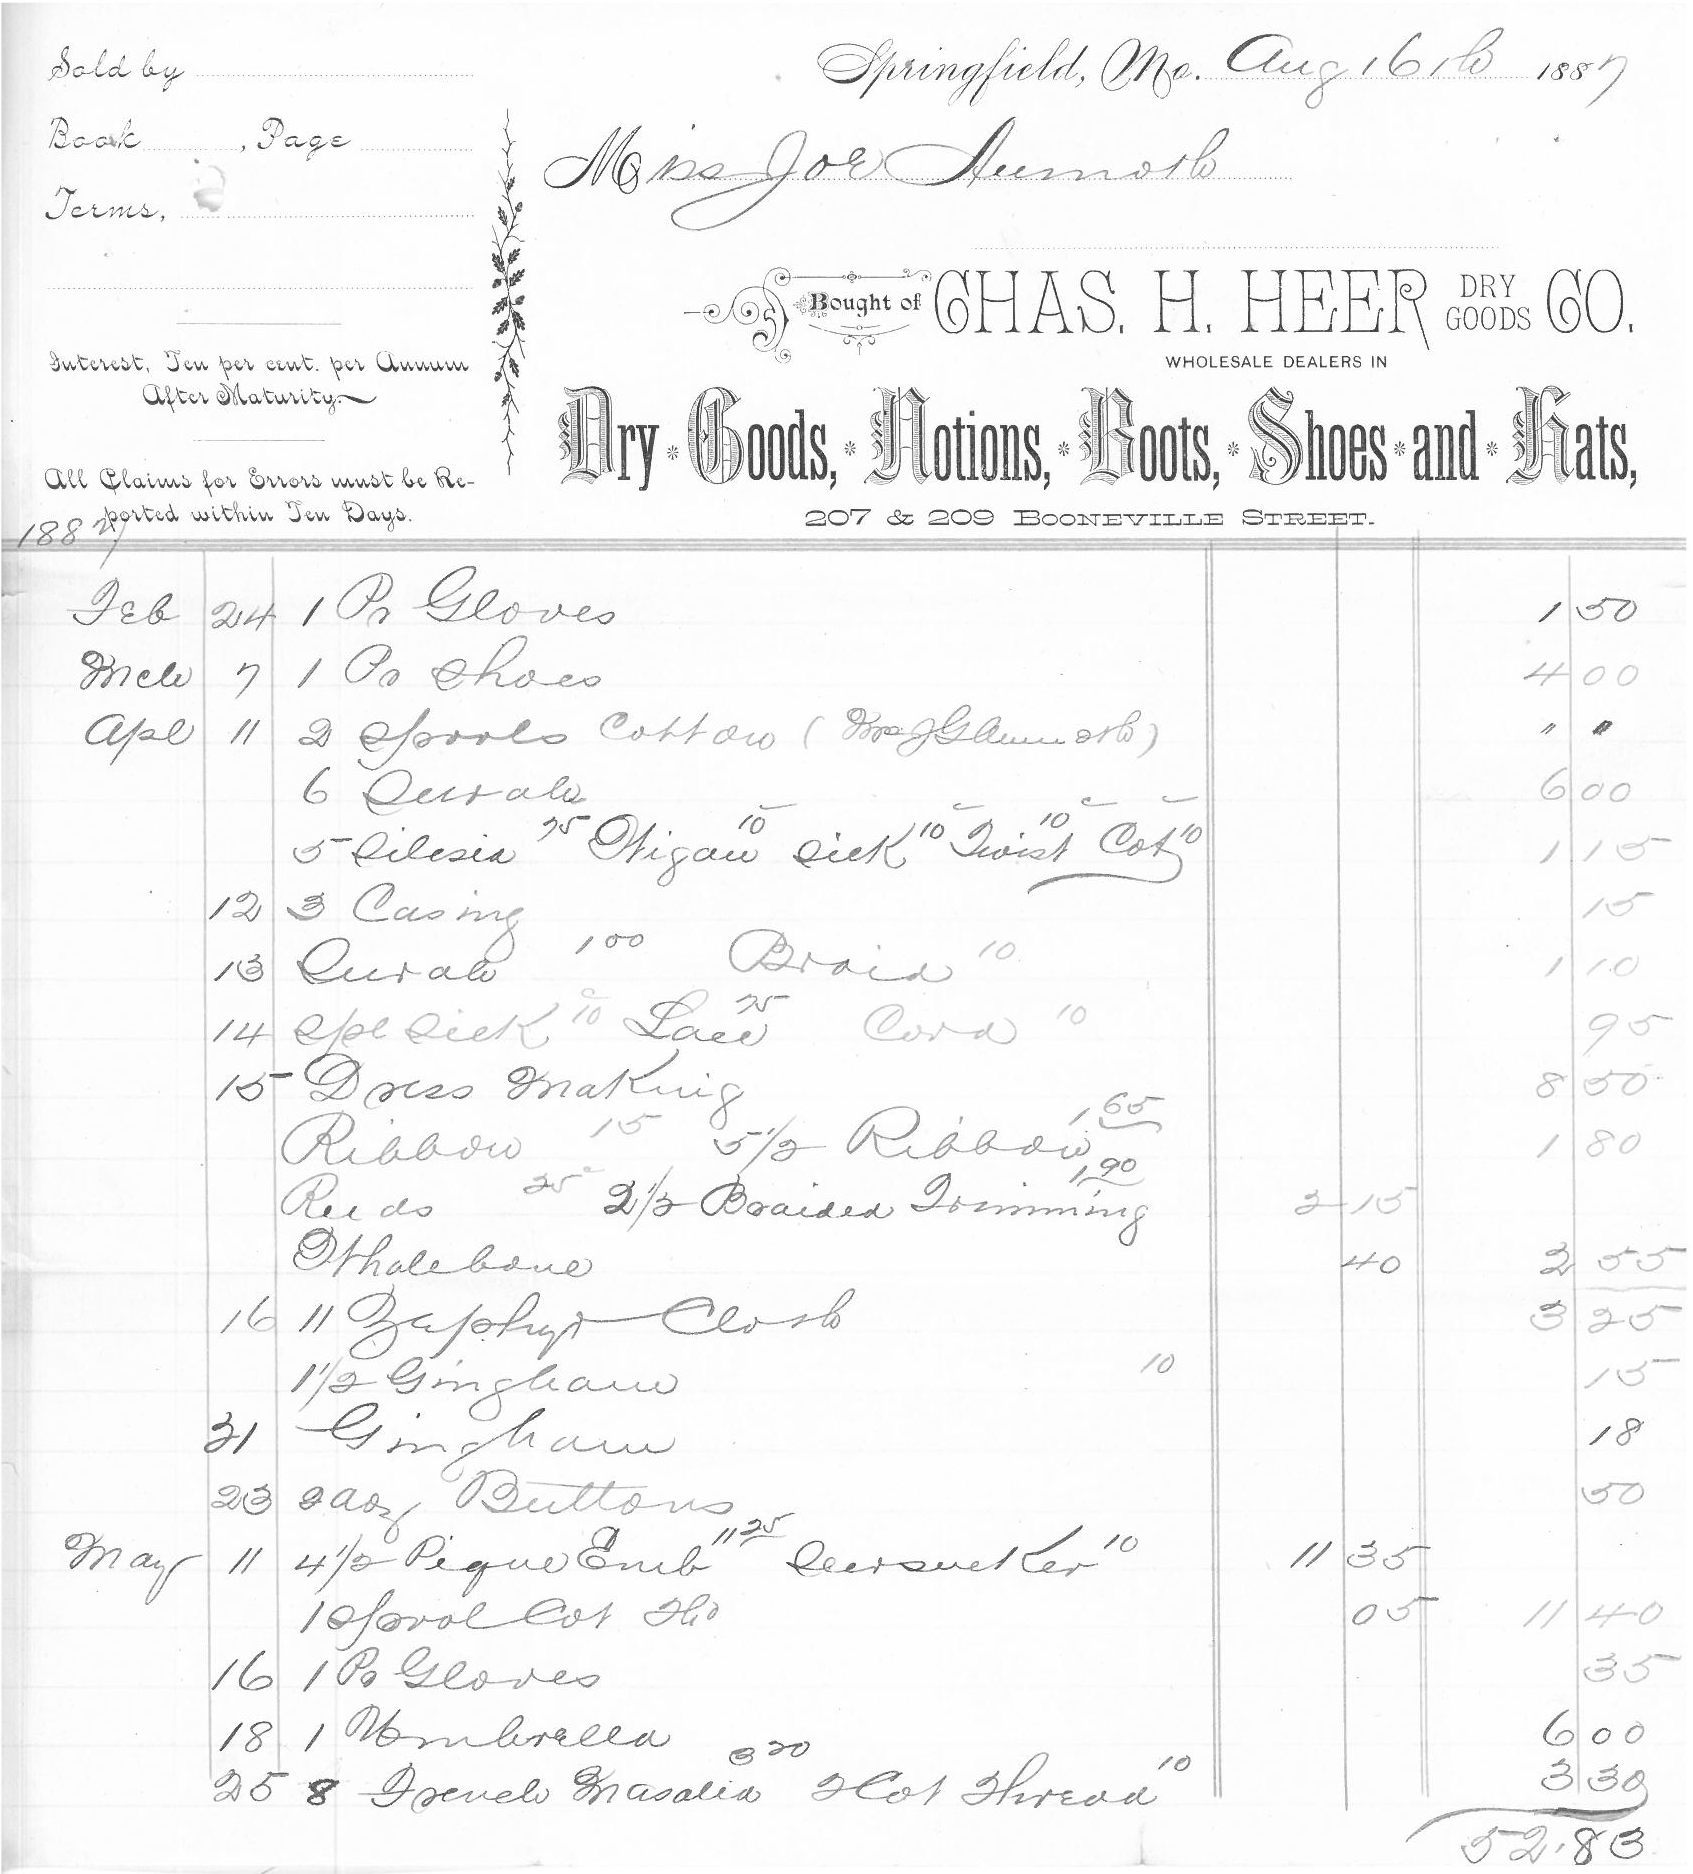 Sold by
Book , Page
Terms,
Interest, Ten per cent. per Annum
After Maturity.
All Claims for Errors must be Re-
ported within Ten Days.
Springfield, Mo. Aug 16th 1887
Miss Joe
Bought of CHAS. H. HEER DRY GOODS CO.
WHOLESALE DEALERS IN
Dry Goods, Notions, Boots, Shoes and Hats,
207 & 209 BOONEVILLE STREET.
1887
Feb 24 1 Pr Gloves 1 50
Mch 7 1 Pr Shoes 4 00
Apl 11 2 Spools Cotton ( Mrs J G ) " "
6 Surah 6 00
5 Silesia 75 Wigan 10 Silk 10 Twist 10 Cot 10 1 15
12 3 Casing 15
13 Surah 1 00 Braid 10 1 10
14 Spl Silk 10 Lace 75 Cord 10 95
15 Dress Making 8 50
Ribbon 15 5 1/2 Ribbon 1 65 1 80
Reeds 25c 2 1/2 Braided Trimming 1,90 2 15
Whalebone 40 2 55
16 11 Zephyr Cloth 3 25
1 1/2 Gingham 10 15
21 Gingham 18
23 2 doz Buttons 50
May 11 4 1/2 Pique Emb 11 25 Seersucker 10 11 35
1 Spool Cot Thd 05 11 40
16 1 Pr Gloves 35
18 1 Umbrella 6 00
25 8 French Masalia 3 20 2 Cot Thread 10 3 30
52.83